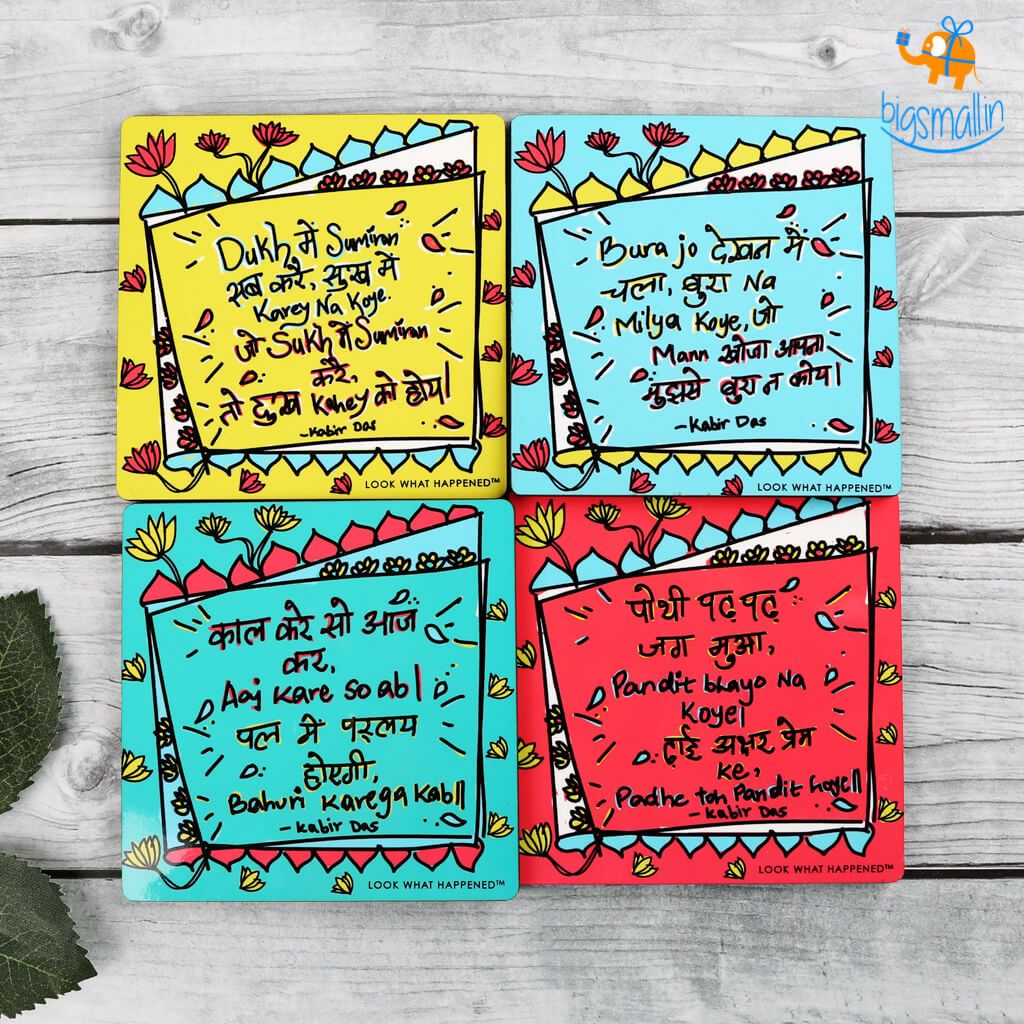 bigsmall.in
Dukh में Sumiran
सब करै, सुख में
Karey Na Koye.
जो Sukh में Sumiran
करै,
तो दुख Kahey को होय।
-Kabir Das
LOOK WHAT HAPPENED™
Bura jo देखन में
चला, बुरा Na
Milya Koye, जो
Mann खोजा आपना
मुझसे बुरा न कोय।
-Kabir Das
LOOK WHAT HAPPENED™
काल करे सो आज
कर,
Aaj Kare so ab।
पल में परलय
होएगी,
Bahuri Karega Kab॥
-Kabir Das
LOOK WHAT HAPPENED™
पोथी पढ़ पढ़
जग मुआ,
Pandit bhayo Na
Koye।
ढाई अक्षर प्रेम
ke,
Padhe toh Pandit hoye॥
-Kabir Das
LOOK WHAT HAPPENED™